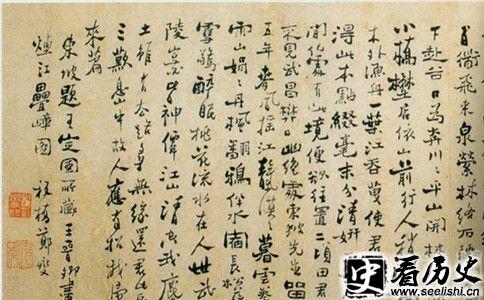 道飛來泉縈林絡石
下赴谷口為奔川川平山開林
小橋野店依山前行人稍
木外漁舟一葉江吞天使君
得此本點綴毫末分清妍
間何處有此境便欲往置二頃田君
不見武昌樊口幽絕處東坡先生留
五年春風搖江天漠漠暮雲卷
雨山娟娟丹楓翻鴉伴水宿長松落
雪驚醉眠桃花流水在人世武
陵豈必皆神僊江山清空我塵
土雖有去路尋無緣還君此畫
三歎息山中故人應有招我歸
來篇
東坡題王定國所藏王晉卿畫
煙江疊嶂圖 板橋鄭燮
史 看历史
www.seelishi.cn